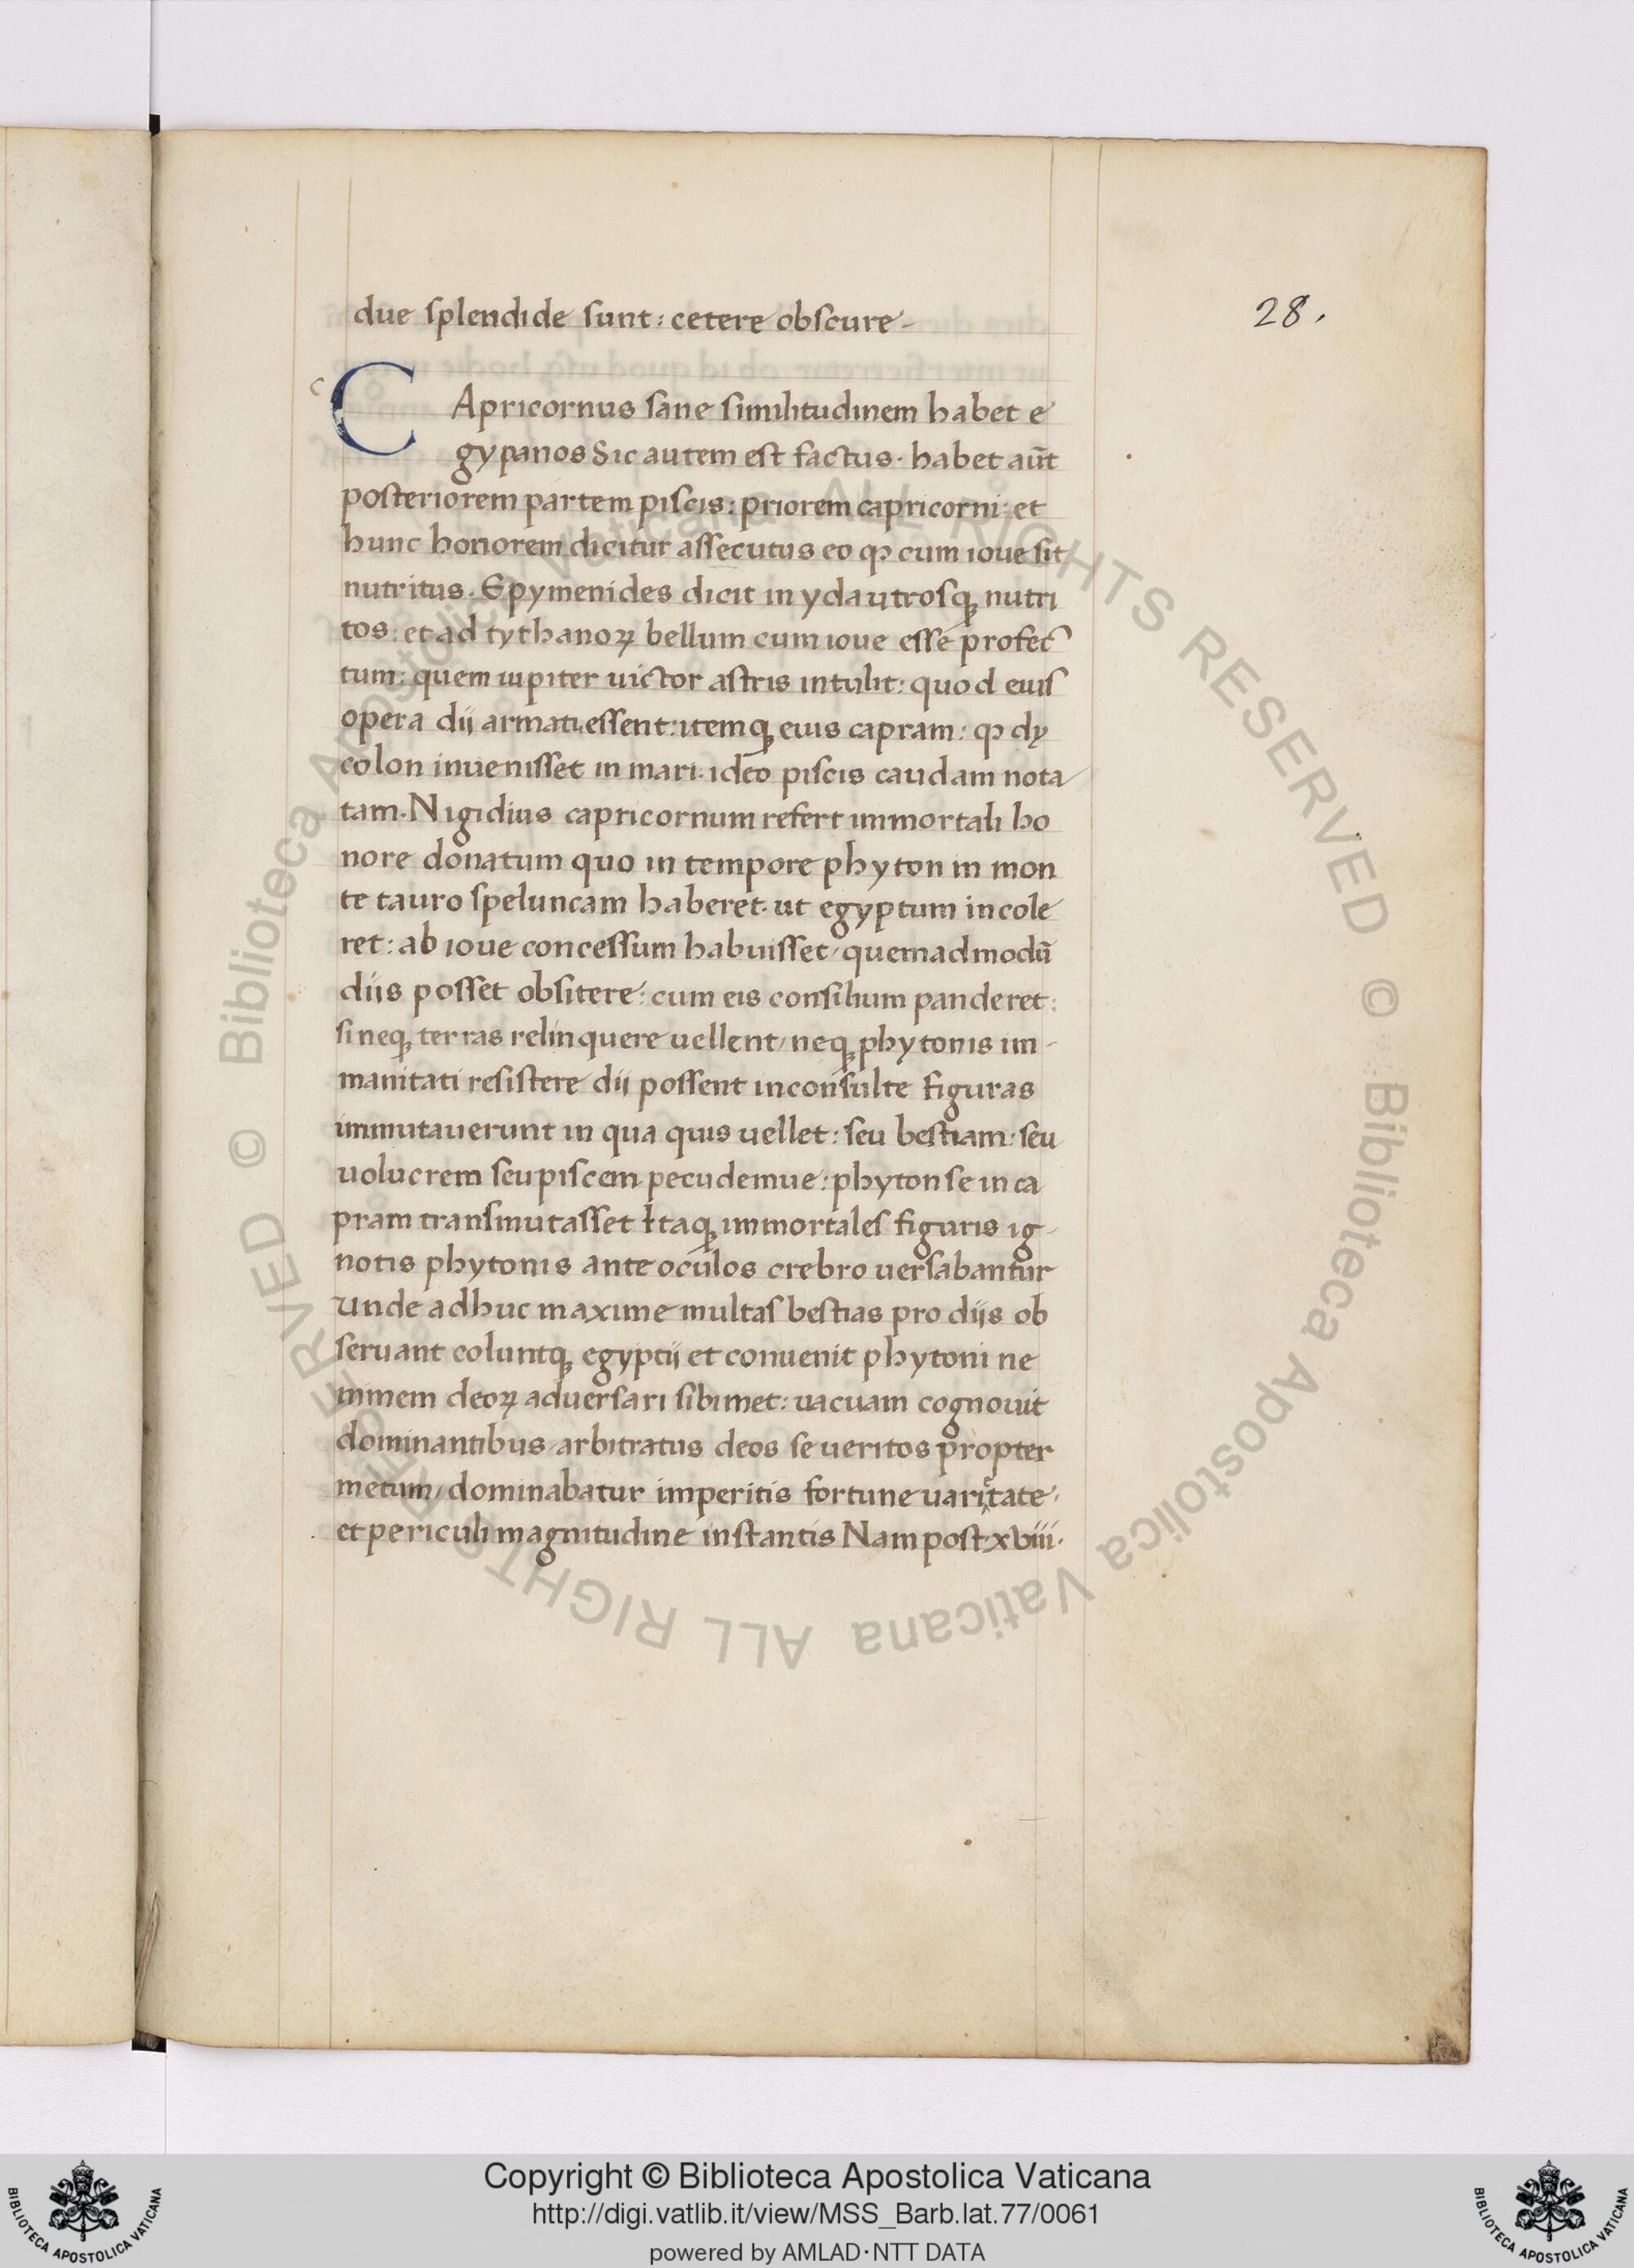 due splendide sunt: cetere obscure.
28.
c
CApricornus sane similitudinem habet e
gypanos Sic autem est factus. habet aūt
posteriorem partem piscis: priorem capricorni: et
hunc honorem dicitur assecutus eo ꝙ cum ioue sit
nutritus. Epymenides dicit in yda utrosqꝫ nutri
tos: et ad tythanoꝝ bellum cum ioue esse profec
tum: quem iupiter uictor astris intulit: quod eius
opera dij armati essent: itemqꝫ eius capram: ꝙ dy
colon inuenisset in mari. ideo piscis caudam nota
tam. Nigidius capricornum refert immortali ho
nore donatum quo in tempore phyton in mon
te tauro speluncam haberet. ut egyptum incole
ret: ab ioue concessum habuisset/ quemadmodū
diis posset obsitere: cum eis consilium panderet:
si neqꝫ terras relinquere uellent/ neqꝫ phytonis im-
manitati resistere dij possent inconsulte figuras
immutauerunt in qua quis uellet: seu bestiam: seu
uolucrem seu piscem pecudemue: phyton se in ca
pram transmutasset Itaqꝫ immortales figuris ig-
notis phytonis ante oculos crebro uersabantur
unde adhuc maxime multas bestias pro dijs ob
seruant coluntqꝫ egyptij et conuenit phytoni ne
minem deoꝝ aduersari sibimet: uacuam cognouit
dominantibus arbitratus deos se ueritos propter
metum/ dominabatur imperitis fortune uarietate.
et periculi magnitudine instantis Nam post xviii.
Copyright © Biblioteca Apostolica Vaticana
http://digi.vatlib.it/view/MSS_Barb.lat.77/0061
powered by AMLAD·NTT DATA
BIBLIOTECA APOSTOLICA VATICANA
BIBLIOTECA APOSTOLICA VATICANA
© Biblioteca Apostolica Vaticana ALL RIGHTS RESERVED © Biblioteca Apostolica Vaticana ALL RIGHTS RESERVED